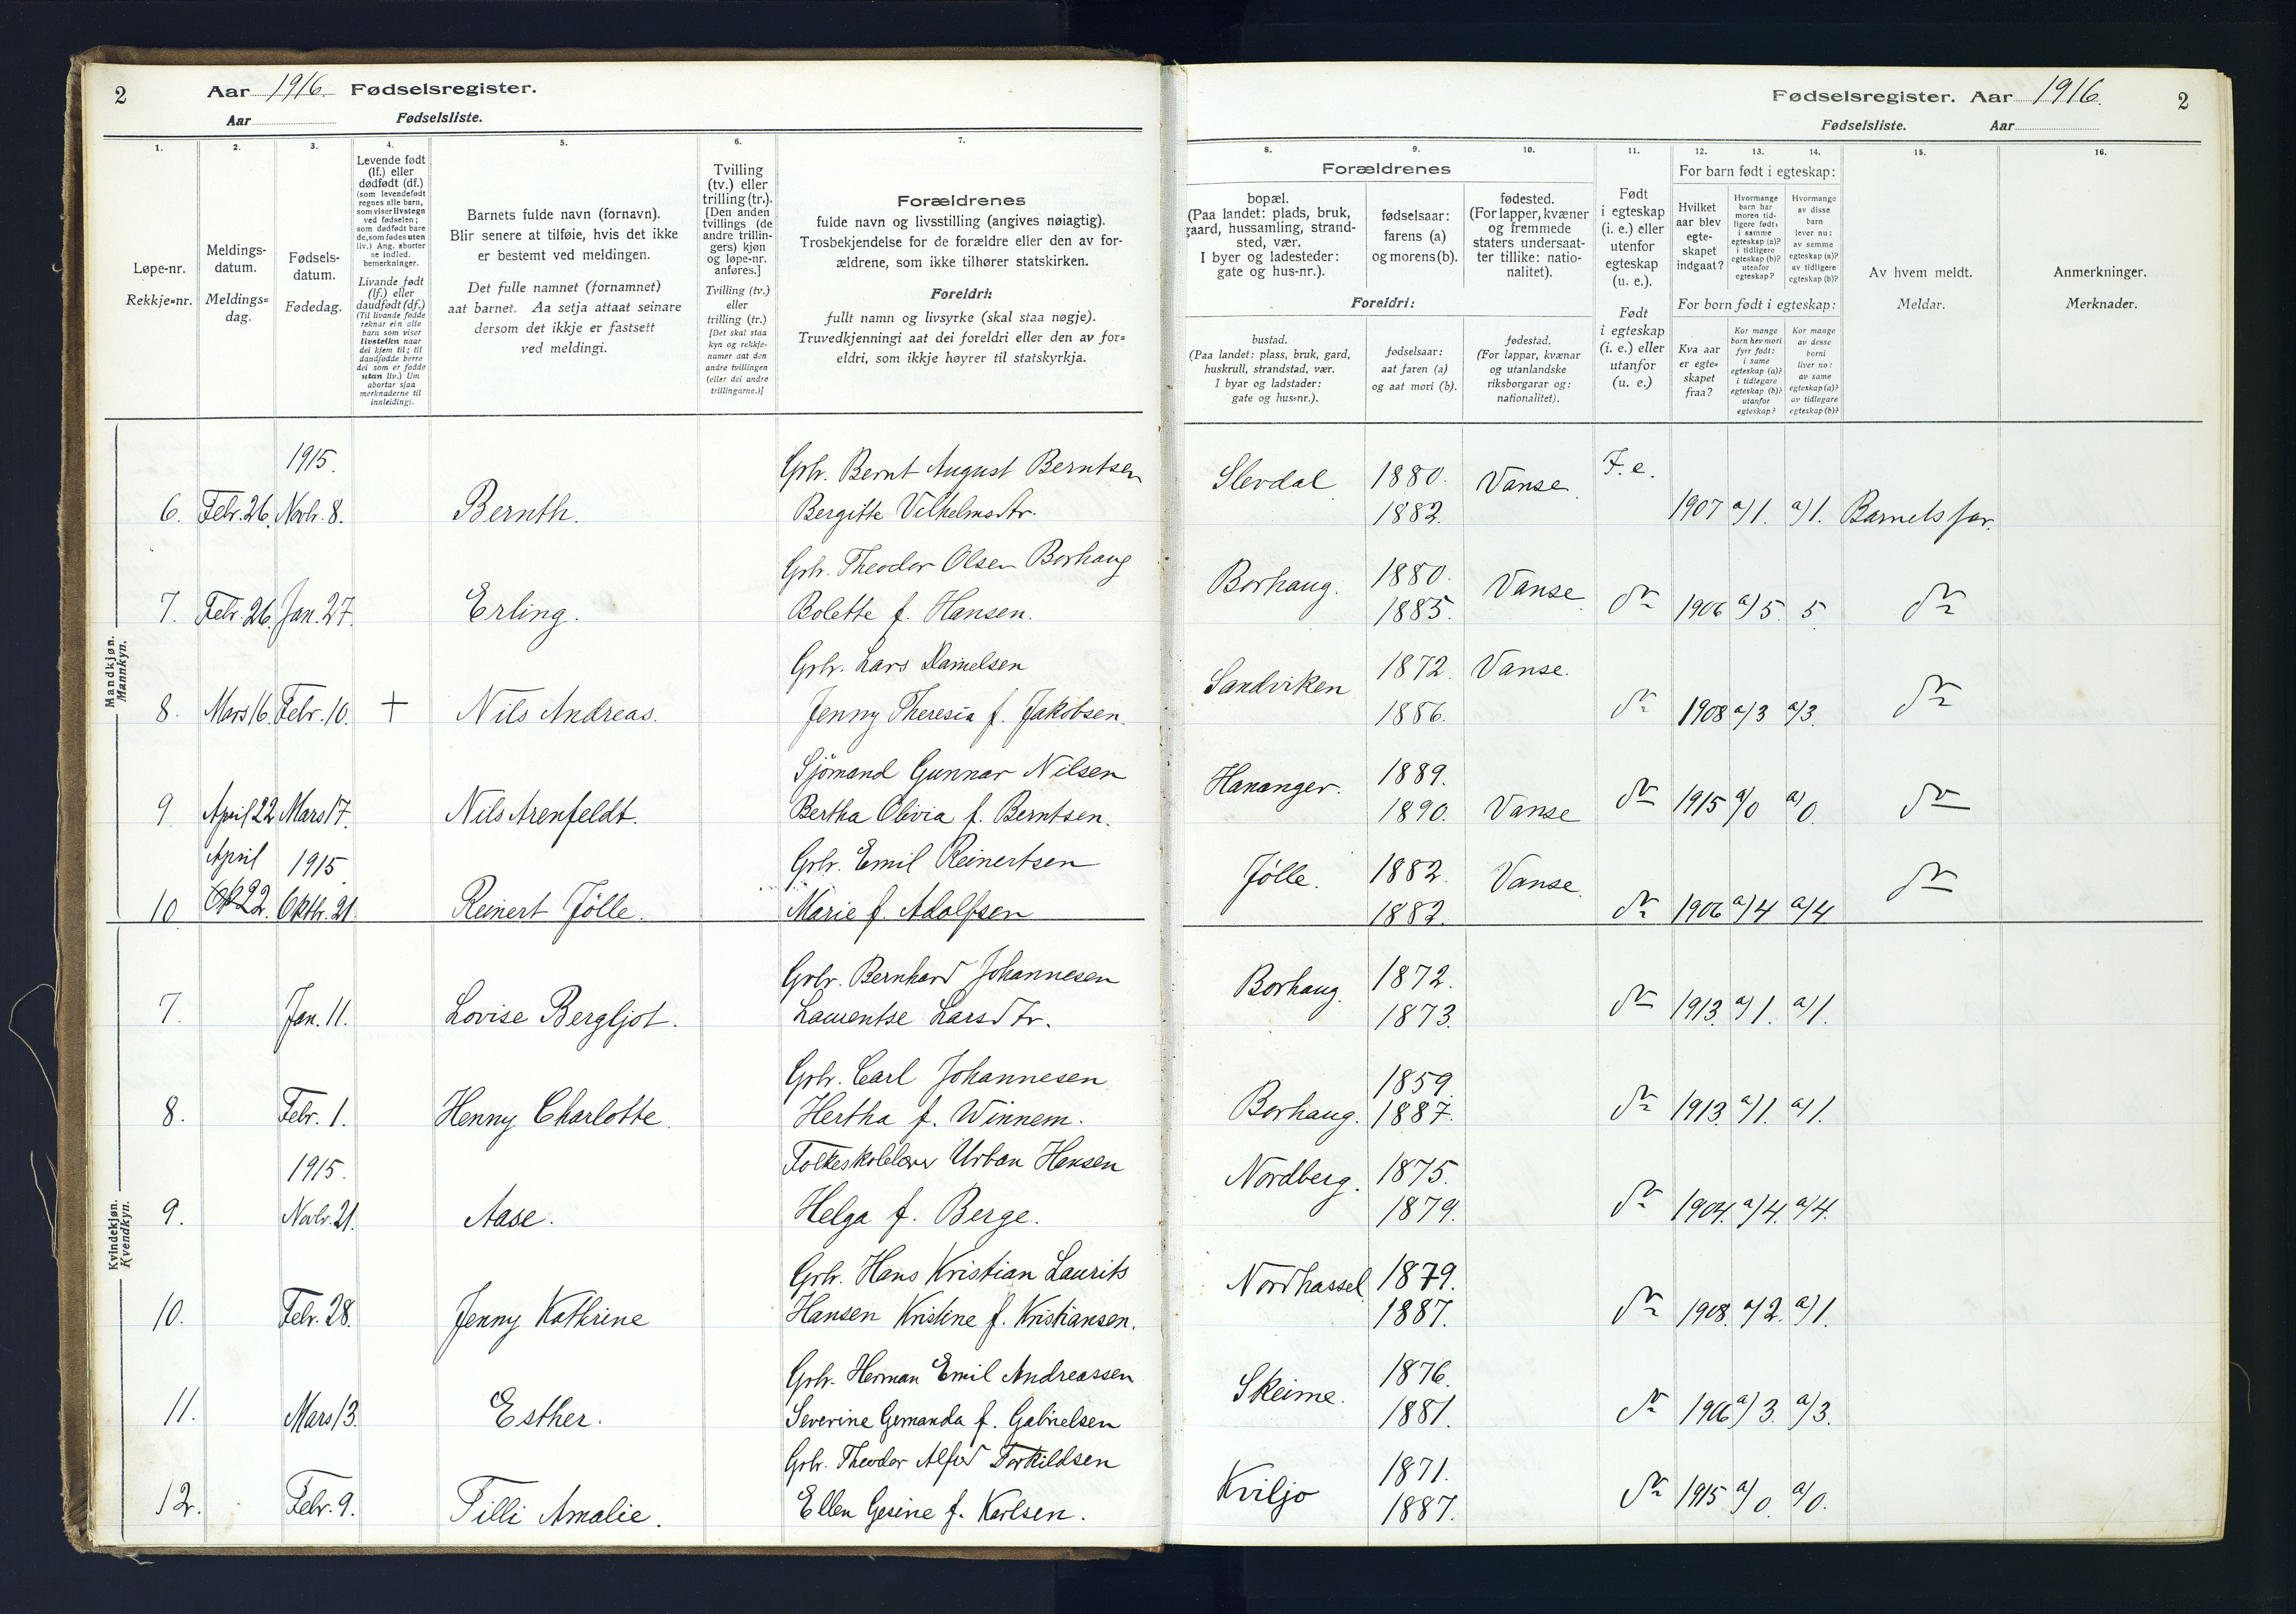 2 Aar 1916. Fødselsregister.
Aar Fødselsliste.
1. 2. 3. 4. 5. 6. 7.
Løpe-nr.
Rekkje=nr.
Meldings-
datum.
Meldings=
dag.
Fødsels-
datum.
Fødedag.
Levende født
(lf.) eller
dødfødt (df.)
(som levendefødt
regnes alle barn,
som viser livstegn
ved fødselen;
som dødfødt bare
de, som fødes uten
liv.) Ang. aborter
se indled.
bemerkninger.
Livande født
(lf.) eller
daudfødt (df.)
(Til livande fødde
reknar ein alle
barn som viser
livsteikn naar
dei kjem til; til
daudfødde berre
dei som er fødde
utan liv.) Um
abortar sjaa
merknaderne til
innleidingi.
Barnets fulde navn (fornavn).
Blir senere at tilføie, hvis det ikke
er bestemt ved meldingen.
Det fulle namnet (fornamnet)
aat barnet. Aa setja attaat seinare
dersom det ikkje er fastsett
ved meldingi.
Tvilling
(tv.) eller
trilling (tr.).
[Den anden
tvillings (de
andre trillin-
gers) kjøn
og løpe-nr.
anføres.]
Tvilling (tv.)
eller
trilling (tr.)
[Det skal staa
kyn og rekkje-
numer aat den
andre tvillingen
(eller dei andre
trillingarne.)]
Forældrenes
fulde navn og livsstilling (angives nøiagtig).
Trosbekjendelse for de forældre eller den av for-
ældrene, som ikke tilhører statskirken.
Foreldri:
fullt namn og livsyrke (skal staa nøgje).
Truvedkjenningi aat dei foreldri eller den av for=
eldri, som ikkje høyrer til statskyrkja.
Mandkjøn.
Mannkyn.
1915. Grbr. Bernt August Berntsen
6. Febr. 26. Novbr. 8. Bernth. Bergitte Vilhelmsdtr.
Grbr. Theodor Olsen Borhaug
7. Febr. 26. Jan. 27. Erling. Bolette f. Hansen.
Grbr. Lars Danielsen
8. Mars 16. Febr. 10. + Nils Andreas. Jenny Theresia f. Jakobsen.
Sjömand Gunnar Nilsen
9. April 22 Mars 17. Nils Arenfeldt. Bertha Olivia f. Berntsen.
April 1915. Grbr. Emil Reinertsen
10 22. Oktbr. 21. Reinert Jölle. Marie f. Adolfsen
Kvindekjøn.
Kvendkyn.
Grbr. Bernhard Johannesen
7. Jan. 11. Lovise Bergljot. Laurentse Larsdtr.
Grbr. Carl Johannesen
8. Febr. 1. Henny Charlotte. Hertha f. Winnem.
1915. Folkeskolelærer Urban Hansen
9. Novbr. 21. Aase. Helga f. Berge.
Grbr. Hans Kristian Laurits
10. Febr. 28. Jenny Kathrine Hansen Kristine f. Kristiansen.
Grbr. Herman Emil Andreassen
11. Mars 13. Esther. Severine Gemanda f. Gabrielsen
Grbr. Theodor Alfred Torkildsen
12. Febr. 9. Tilli Amalie. Ellen Gesine f. Karlsen.
Fødselsregister. Aar 1916. 2
Fødselsliste. Aar
8. 9. 10. 11. 12. 13. 14. 15. 16.
Forældrenes
bopæl.
(Paa landet: plads, bruk,
gaard, hussamling, strand-
sted, vær.
I byer og ladesteder:
gate og hus-nr.).
fødselsaar:
farens (a)
og morens (b).
fødested.
(For lapper, kvæner
og fremmede
staters undersaat-
ter tillike: natio-
nalitet).
Foreldri:
bustad.
(Paa landet: plass, bruk, gard,
huskrull, strandstad, vær.
I byar og ladstader:
gate og hus=nr.).
fødselsaar:
aat faren (a)
og aat mori (b).
fødestad.
(For lappar, kvænar
og utanlandske
riksborgarar og:
nationalitet).
Født
i egteskap
(i. e.) eller
utenfor
egteskap
(u. e.).
Født
i egteskap
(i. e.) eller
utanfor
(u. e.)
For barn født i egteskap:
Hvilket
aar blev
egte-
skapet
indgaat?
Hvormange
barn har
moren tid-
ligere født:
i samme
egteskap (a)?
i tidligere
egteskap (b)?
utenfor
egteskap?
Hvormange
av disse
barn
lever nu:
av samme
egteskap (a)?
av tidligere
egteskap (b)?
For born født i egteskap:
Kva aar
er egte=
skapet
fraa?
Kor mange
born hev mori
fyrr født:
i same
egteskap (a)?
i tidlegare
egteskap (b)?
utanfor
egteskap?
Kor mange
av desse
borni
liver no:
av same
egteskap (a)?
av tidlegare
egteskap (b)?
Av hvem meldt.
Meldar.
Anmerkninger.
Merknader.
Slevdal 1880. Vanse. F. e.
1882. 1907 a)1. a)1. Barnets far.
Borhaug. 1880. Vanse.
1885. 1906 a)5. 5.
Sandviken 1872. Vanse.
1886. 1908 a)3 a)3.
Hananger. 1889.
1890. Vanse 1915 a)0 a)0.
Jölle. 1882. Vanse.
1882. 1906 a)4 a)4
Borhaug. 1872.
1873. 1913. a)1. a)1.
1859.
Borhaug. 1887. 1913. a)1. a)1.
Nordberg. 1875.
1879. 1904. a)4. a)4.
Nordhassel. 1879.
1887. 1908. a)2. a)1.
Skeime. 1876.
1881. 1906 a)3. a)3.
Kviljo 1871.
1887. 1915 a)0. a)0.